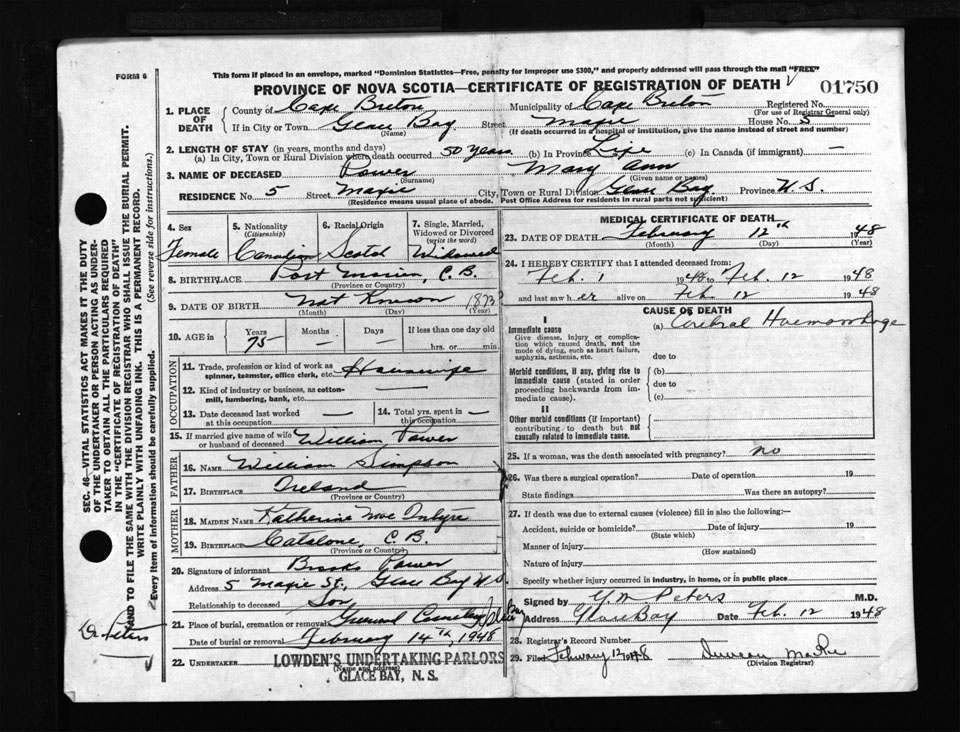 FORM 6
This form if placed in an envelope, marked "Dominion Statistics—Free, penalty for improper use $300," and properly addressed will pass through the mail "FREE"
PROVINCE OF NOVA SCOTIA—CERTIFICATE OF REGISTRATION OF DEATH 01750
1. PLACE OF DEATH County of Cape Breton Municipality of Cape Breton Registered No.
(For use of Registrar General only)
If in City or Town Glace Bay Street House No. 5
(Name) (If death occurred in a hospital or institution, give the name instead of street and number)
2. LENGTH OF STAY (in years, months and days)
(a) In City, Town or Rural Division where death occurred 50 Years (b) In Province Life (c) In Canada (if immigrant) —
3. NAME OF DECEASED Power Mary Ann
(Surname) (Given name or names)
RESIDENCE No. 5 Street City, Town or Rural Division Glace Bay Province N.S.
(Residence means usual place of abode. Post Office Address for residents in rural parts not sufficient)
4. Sex 5. Nationality (Citizenship) 6. Racial Origin 7. Single, Married, Widowed or Divorced (write the word)
Female Canadian Scotch Widowed
8. BIRTHPLACE Port Morien, C.B.
(Province or Country)
9. DATE OF BIRTH Not Known 1873?
(Month) (Day) (Year)
10. AGE in Years Months Days If less than one day old
75 — — hrs. or min.
OCCUPATION
11. Trade, profession or kind of work as spinner, teamster, office clerk, etc. Housewife
12. Kind of industry or business, as cotton-mill, lumbering, bank, etc.
13. Date deceased last worked at this occupation — 14. Total yrs. spent in this occupation —
15. If married give name of wife or husband of deceased William Power
FATHER
16. NAME William Simpson
17. BIRTHPLACE Ireland
(Province or Country)
MOTHER
18. MAIDEN NAME Katherine Mc Intyre
19. BIRTHPLACE Catalone, C.B.
(Province or Country)
20. Signature of informant Brooks Power
Address 5 St., Glace Bay N.S.
Relationship to deceased Son
21. Place of burial, cremation or removal Cemetery Glace Bay
Date of burial or removal February 14th, 1948
22. UNDERTAKER LOWDEN'S UNDERTAKING PARLORS
(Name and address)
GLACE BAY, N. S.
MEDICAL CERTIFICATE OF DEATH
23. DATE OF DEATH February 12th 1948
(Month) (Day) (Year)
24. I HEREBY CERTIFY that I attended deceased from
Feb. 1 1948 to Feb. 12 1948
and last saw her alive on Feb 12 1948
CAUSE OF DEATH
I
Immediate cause (a) Cerebral Haemorrhage
Give disease, injury or complication which caused death, not the mode of dying, such as heart failure, asphyxia, asthenia, etc.
due to
Morbid conditions, if any, giving rise to immediate cause (stated in order proceeding backwards from immediate cause). (b)
due to
(c)
II
Other morbid conditions (if important) contributing to death but not causally related to immediate cause.
25. If a woman, was the death associated with pregnancy? No
26. Was there a surgical operation? Date of operation 19
State findings Was there an autopsy?
27. If death was due to external causes (violence) fill in also the following:—
Accident, suicide or homicide? Date of injury 19
(State which)
Manner of injury
(How sustained)
Nature of injury
Specify whether injury occurred in industry, in home, or in public place
Signed by Peters M.D.
Address Glace Bay Date Feb. 12 1948
28. Registrar's Record Number
29. Filed February 12 1948 Duncan
(Division Registrar)
SEC. 46—VITAL STATISTICS ACT MAKES IT THE DUTY
OF THE UNDERTAKER OR PERSON ACTING AS UNDER-
TAKER TO OBTAIN ALL THE PARTICULARS REQUIRED
IN THE "CERTIFICATE OF REGISTRATION OF DEATH"
AND TO FILE THE SAME WITH THE DIVISION REGISTRAR WHO SHALL ISSUE THE BURIAL PERMIT.
WRITE PLAINLY WITH UNFADING INK. THIS IS A PERMANENT RECORD.
Every item of information should be carefully supplied. (See reverse side for instructions.)
Dr. Peters